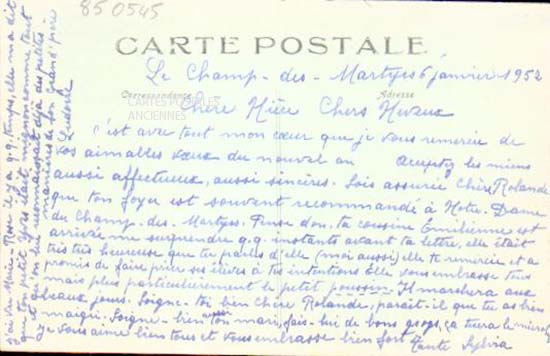 850545
CARTE POSTALE
Correspondance
Adresse
CARTES POSTALES
ANCIENNES
Le Champ-des-Martyres 6 janvier 1952
Chère Nièce Chers Neveux
c'est avec tout mon cœur que je vous remercie de
vos aimables vœux du nouvel an acceptez les miens
aussi affectueux, aussi sincères. Sois assurée Chère Rolande
que ton foyer est souvent recommandé à Notre-Dame
du Champ-des-Martyes. Pense donc, ta cousine Emilienne est
arrivée me surprendre q.q. instants avant ta lettre, elle était
très très heureuse que tu parles d'elle (moi aussi) elle te remercie et a
promis de faire prier ses élèves à tes intentions Elle vous embrasse tous
mais plus particulièrement le petit poussin. Il marchera aux
beaux jours. Soigne-toi bien Chère Rolande, paraît-il que tu as bien
maigri. Soigne-bien aussi ton mari, fais-lui de bons grogs, ça tuera le microbe
Je vous aime bien tous et vous embrasse bien fort Tante Sylvia
j'ai vu Marie-Rose il y a q.q. temps, elle m'a dit
que ton petit Yves était mignon comme tout
et qu'on lui reconnaissait déjà des petites
manières de son Grand'père
Ludovic